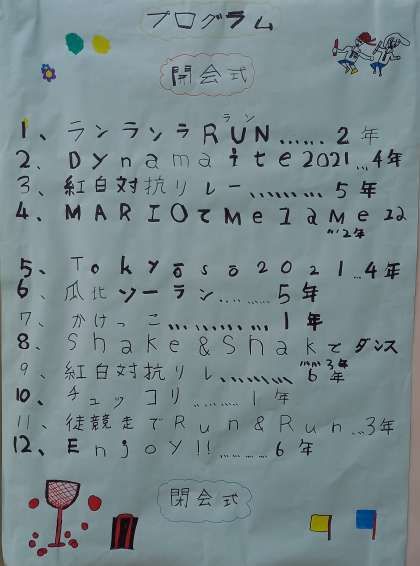 プログラム
開会式
ラン
1、ランランラRUN......2年
2、Dynamaite2021...4年
3、紅白対抗リレー........5年
4、MARIOでMeZaMe
...2年
5、Tokyōsō2021...4年
6、瓜北ソーラン........5年
7、かけっこ............1年
8、Shake&Shakでダンス
......3年
9、紅白対抗リレ........6年
10、チェッコリ........1年
11、徒競走でRun&Run...3年
12、Enjoy!!........6年
閉会式